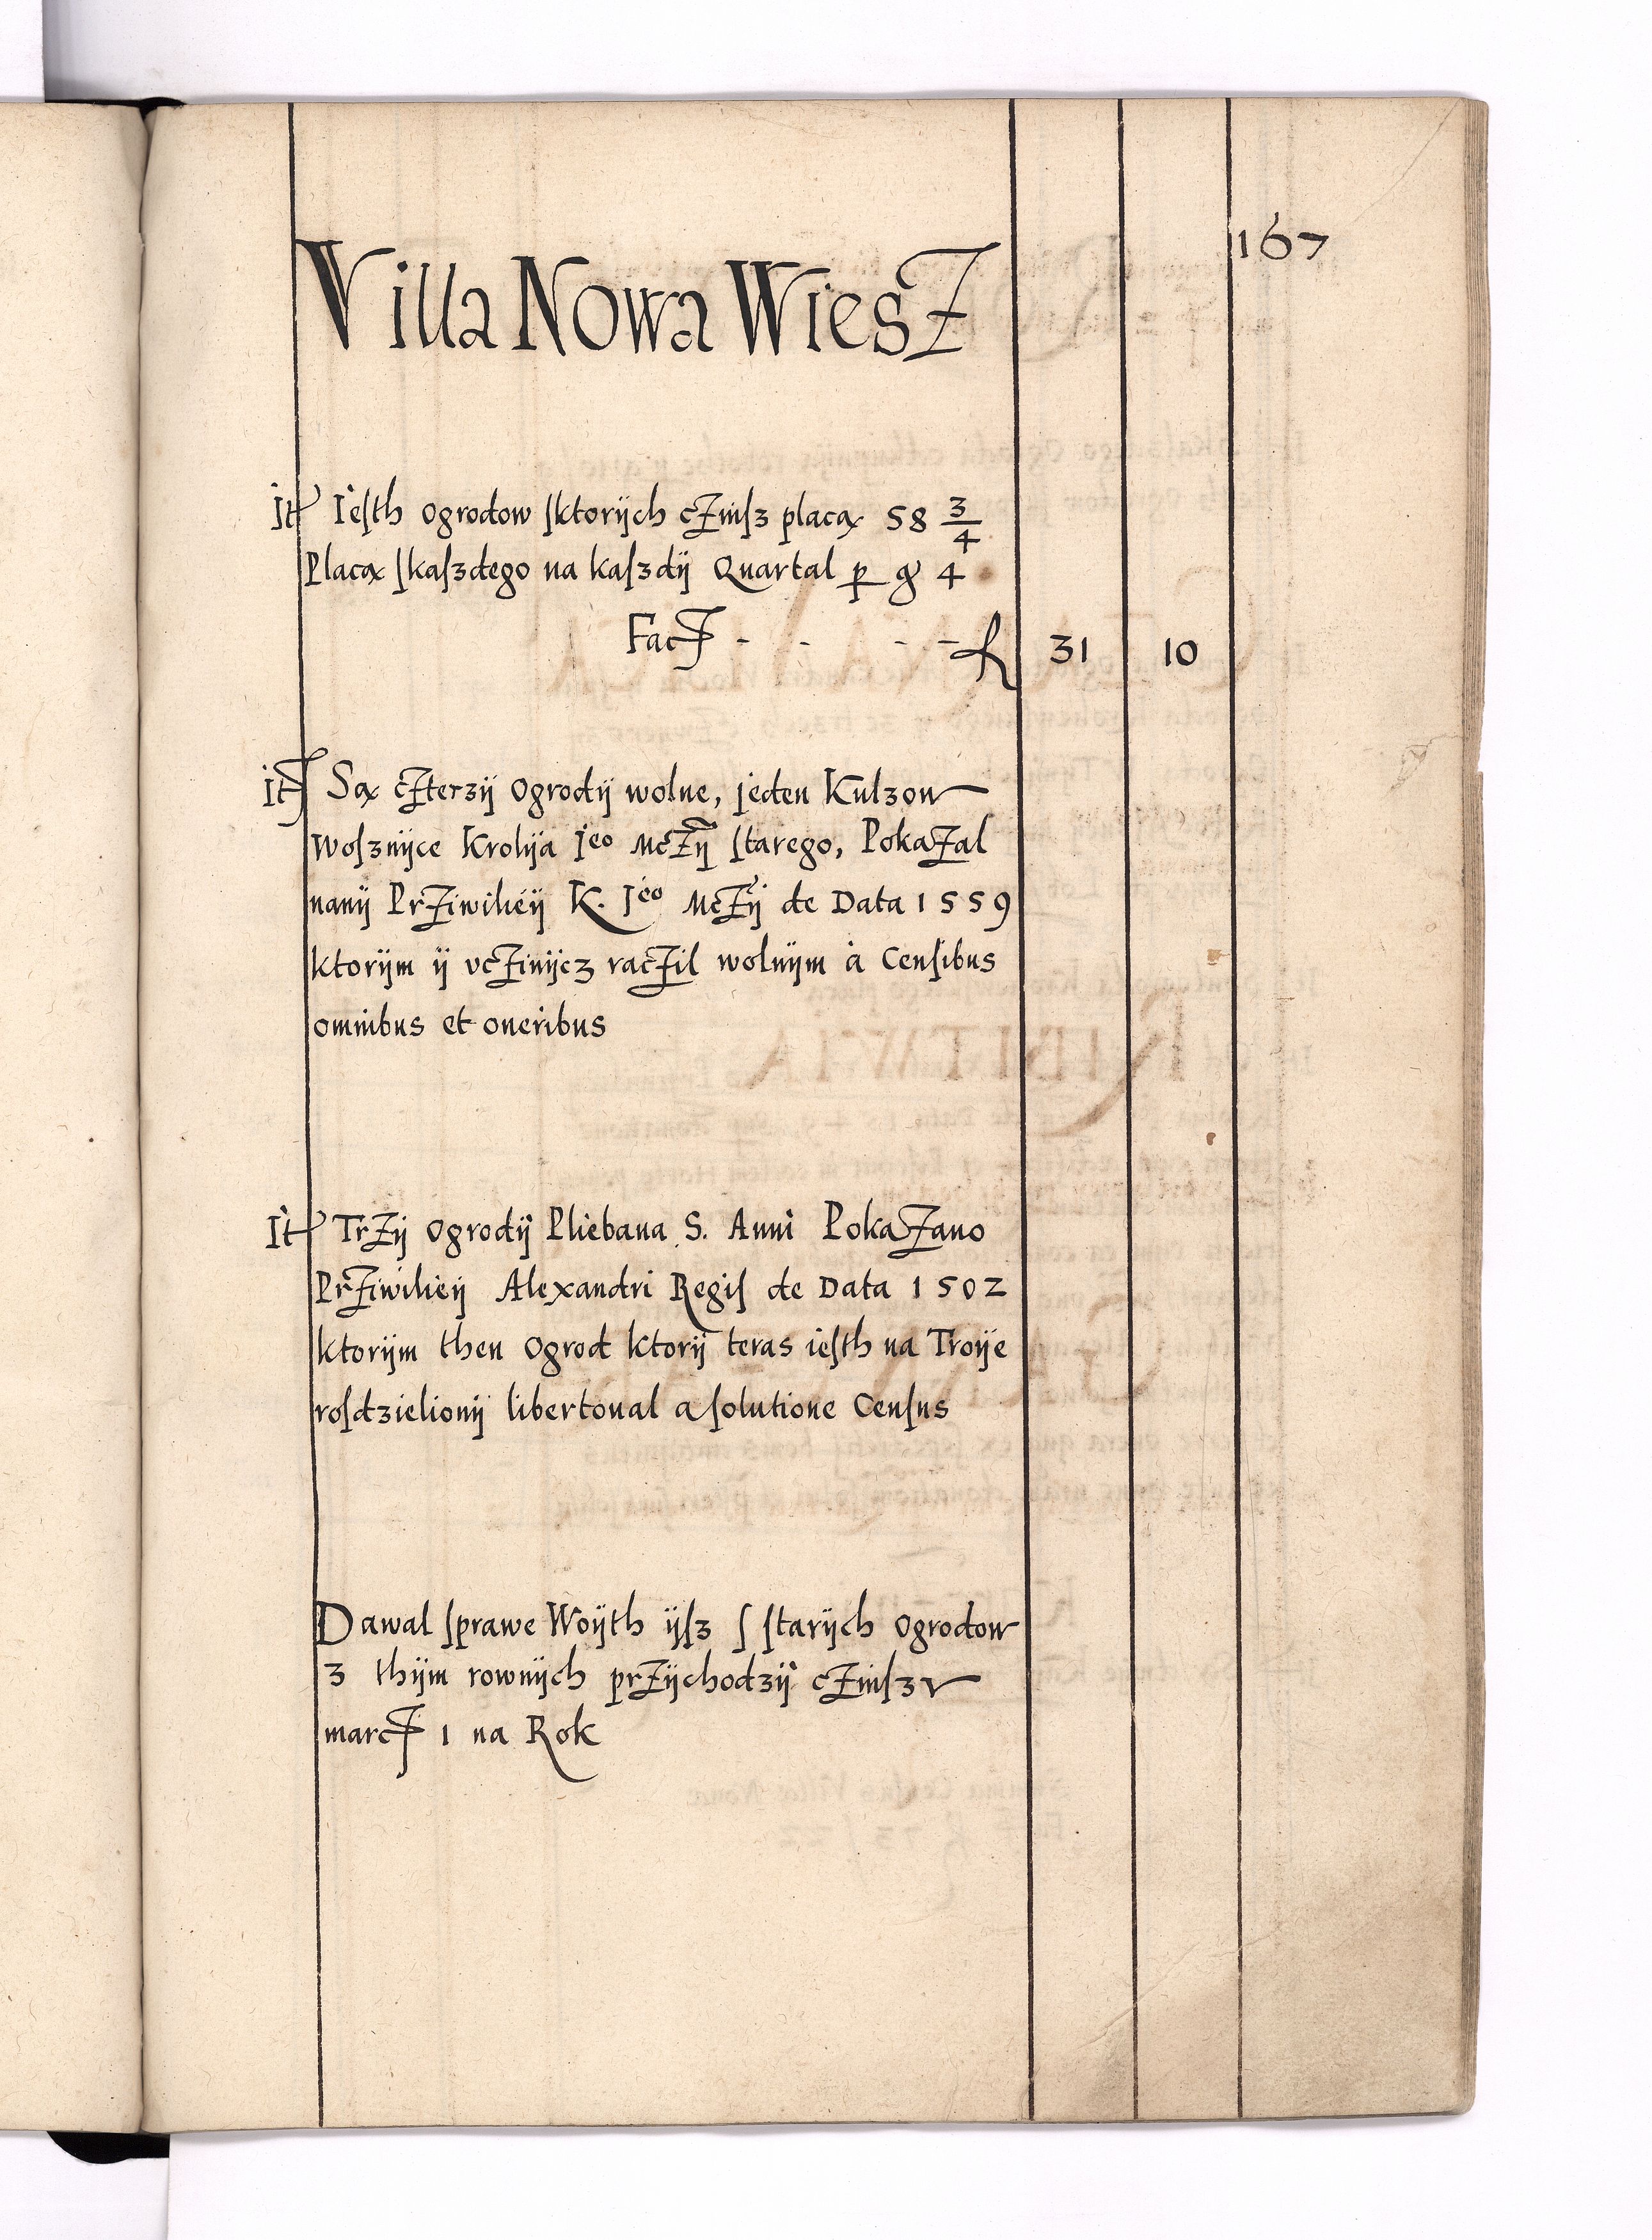 167
Villa Nowa Wiesz
It Iesth ogrodow sktorÿch czinsz placą 58 3/4
Placą skaszdego na kaszdÿ Quartal p g 4
Fact - - - - R 31 10
It Są czterzÿ ogrodÿ wolne, jeden Kulzow
woszniÿce Krolÿa Jeo Mczÿ starego, Pokazal
nanÿ Prziwilieÿ K. Jeo Mczÿ de Data 1559
ktorÿm ÿ vczinÿcz raczil wolnÿm à Censibus
omnibus et oneribus
It Trzÿ ogrodÿ Pliebana S. Anni Pokazano
Prziwilieÿ Alexandri Regis de Data 1502
ktorÿm then ogrod ktorÿ teras iesth na Troÿe
rosdzielionÿ libertoual a solutione Census
Dawal sprawe Woÿth ÿsz s starÿch ogrodow
z thÿm rownÿch przÿchodzÿ czinszv
marc 1 na Rok